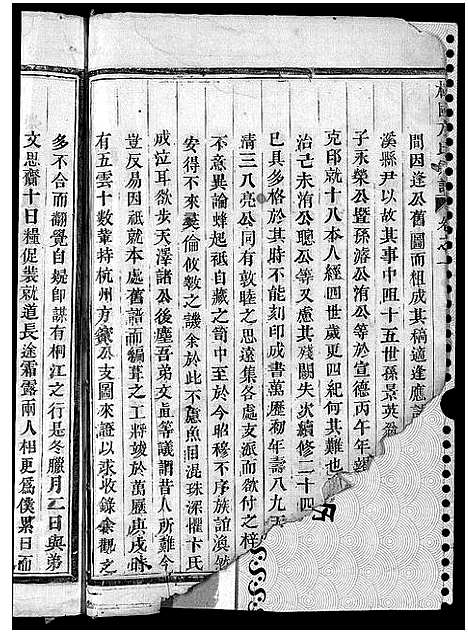 問因逢公舊圖而組成其稿適逢應
溪縣尹以故其事中阻十五世孫景英
子永榮公暨孫濬公洧公等於宣德丙午年
克印就十八本人經四世歲更四紀何其難也
治己未洧公聰公等又慮其殘闕失次續修二十四
已具多格於其時不能刻印成書萬歷初年壽八九五
清三八亮公同有敦睦之思遠集各處支派而欲付之梓
不意異論蜂起祗自藏之笥中至於今昭穆不序族誼渙然
安得不來彝倫攸斁之譏余於此不慮魚目混珠深懼卞氏
成泣耳欲步天澤諸公後塵吾弟文貞等議謂昔人所難今
豈反易因祗就本處舊譜而編葺之工將竣於萬歷庚戌
有五雲十數輩持杭州方公支圖來證以求收錄余觀之
多不合而翻覺自疑即謀有桐江之行是冬臘月二日與弟
文思齋十日糧促裝就道長途霜露兩人相更爲僕累日而